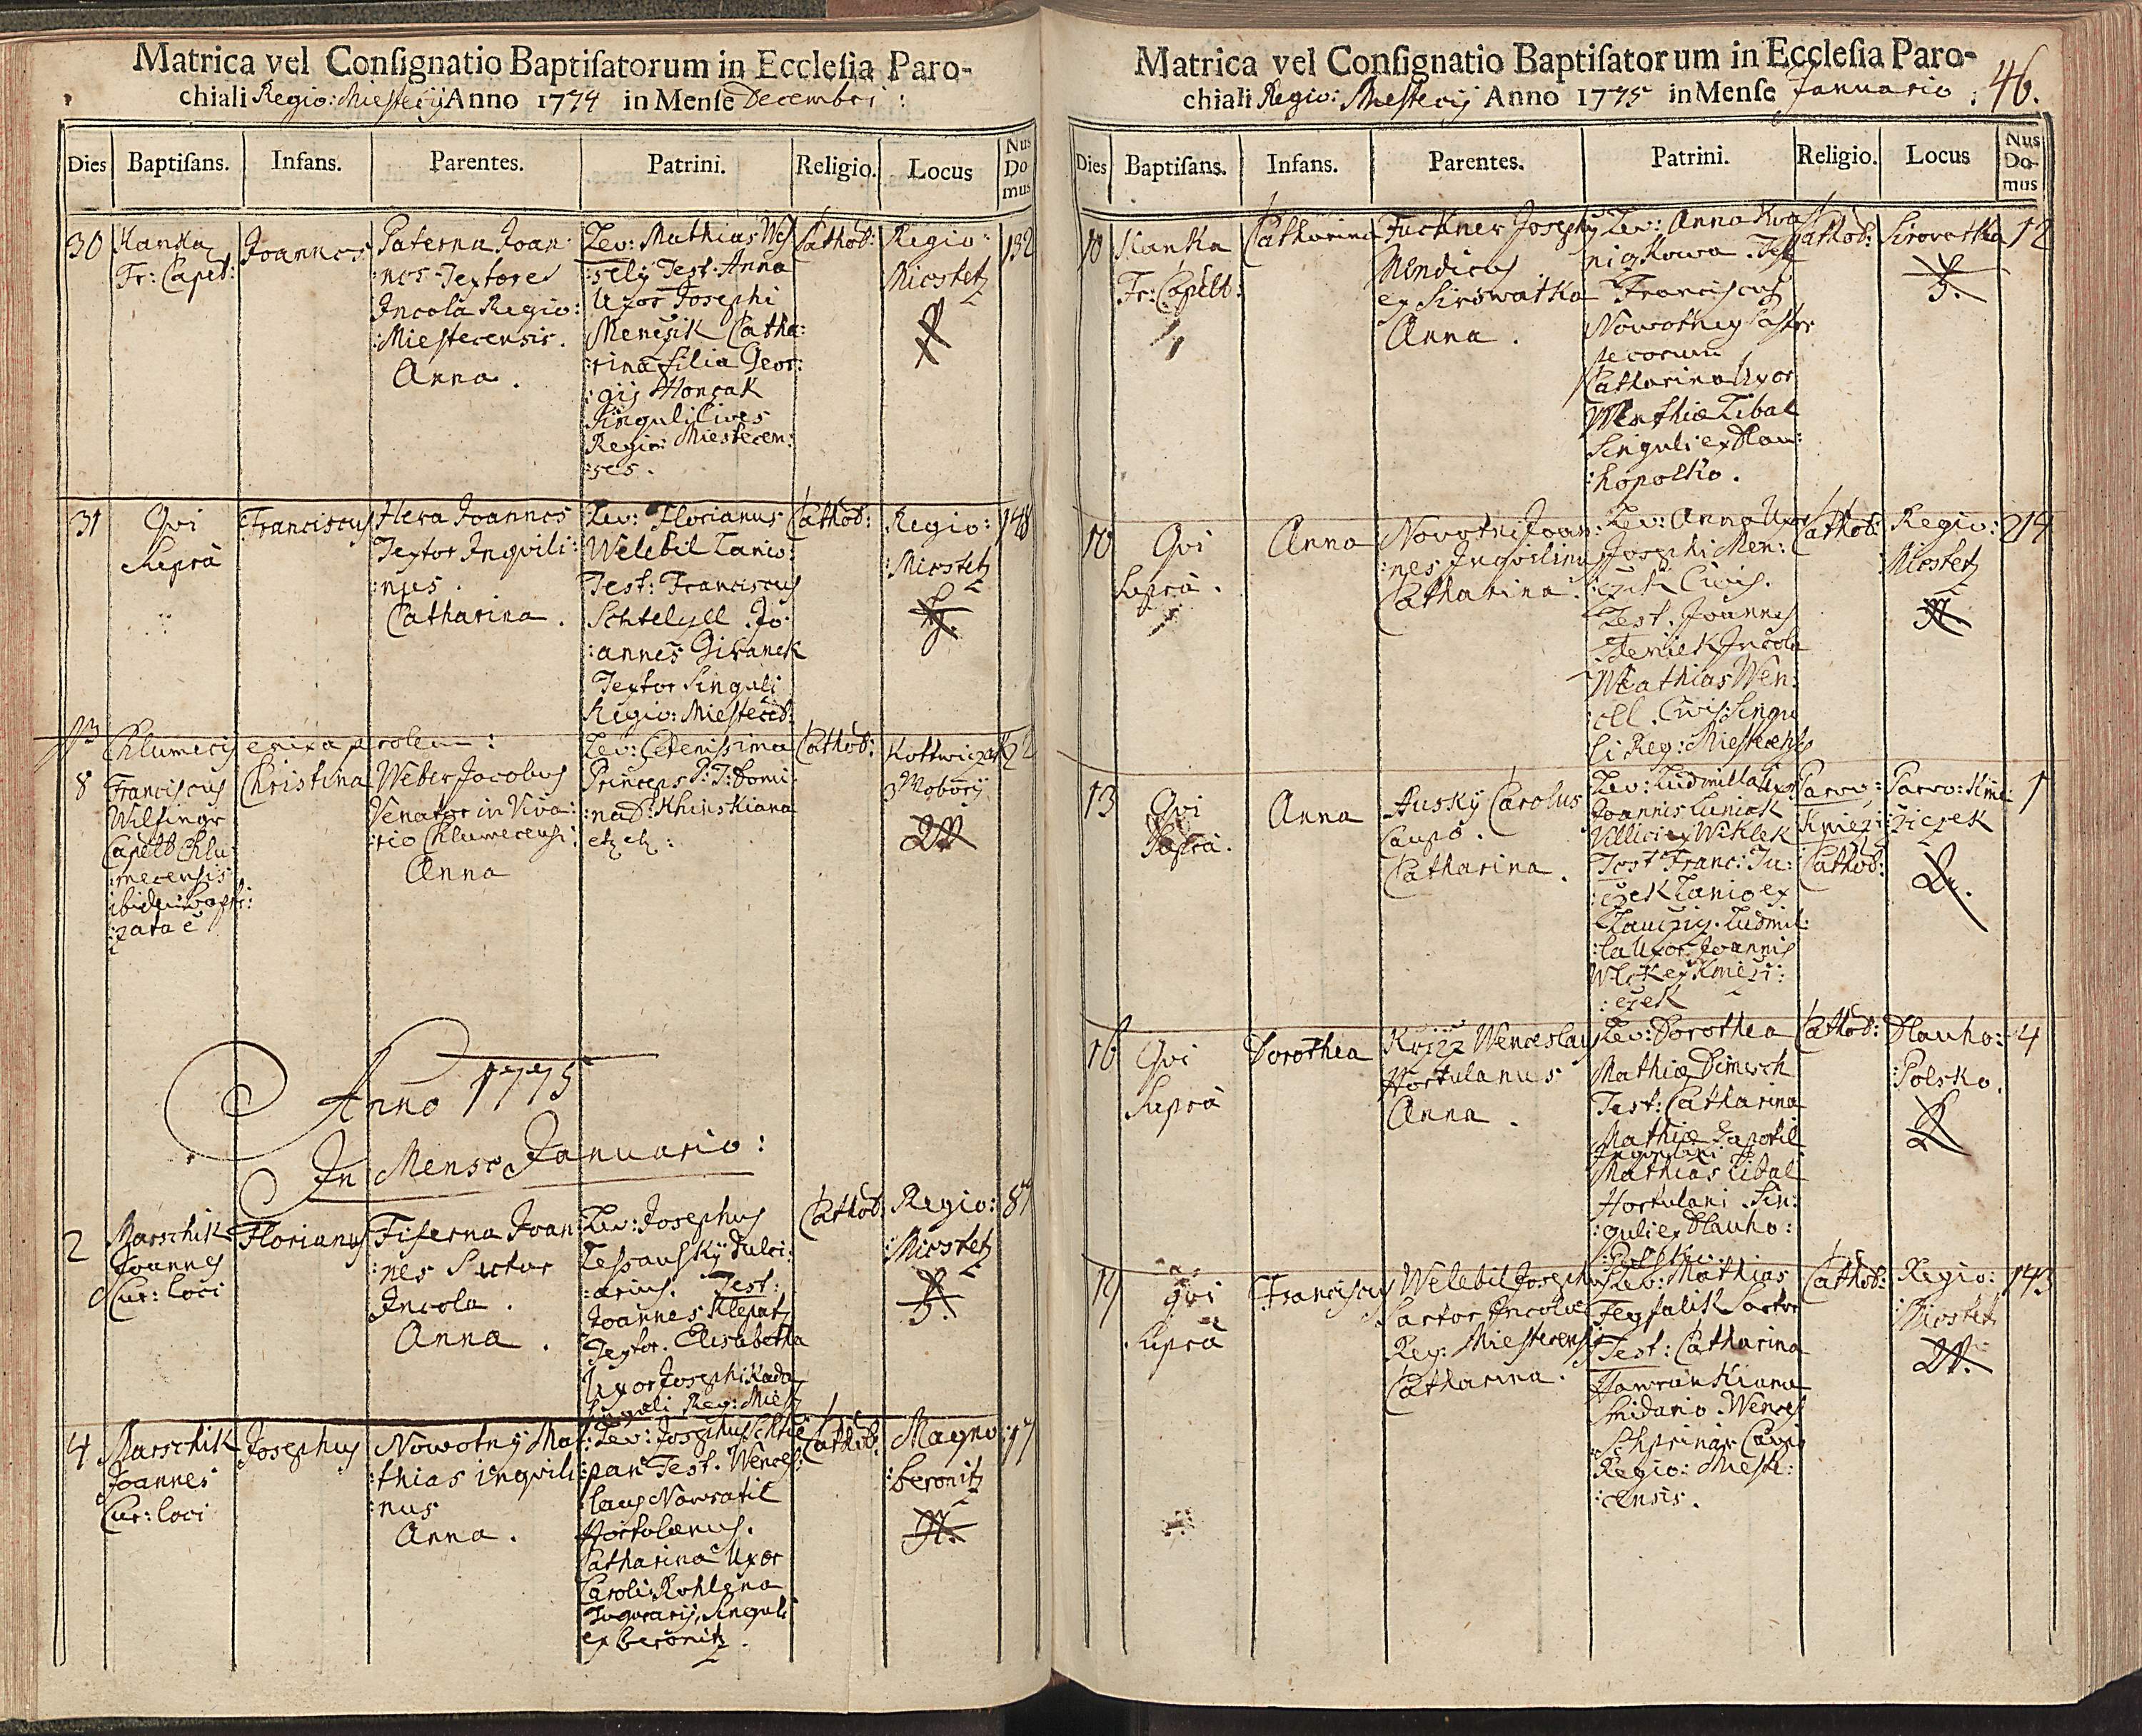 Matrica vel Consignatio Baptisatorum in Ecclesia Paro-
chiali Regio: Miestecij Anno 1774 in Mense Decembri :
Dies Baptisans. Infans. Parentes. Patrini. Religio. Locus Nus Domus
30
Kanka
Fr: Capel:
Joannes
Paterna Joan:
:nes Textor
Incola Regio:
:Miestecensis.
Anna .
Lev: Mathias Wes
:sely Test: Anna
Uxor Josephi
Mencžik Catha:
:rina filia Geor:
:gij Honzak
Singuli Cives
Regio: Miestecen:
:ses .
Cathol:
Regio:
Miestetz
132
31
Qvi
Suprà
Franciscus
Hera Joannes
Textor Inqvili:
:nus .
Catharina .
Lev: Florianus
Welebil Lanio:
Test: Franciscus
Schtelzell Jo:
:annes Giranek
Textor Singuli
Regio: Miesteced:
Cathol:
Regio:
:Miestetz
148
Chlumecij enixa prolem :
8
Franciscus
Wilfinger
Capell Chlu:
:mecensis
ibidem bapti:
:zata ē
Christina
Weber Jacobus
Venator in Viva:
:rio Chlumecensi:
Anna
Lev: Celsissima
Princeps P: T: Domi:
:na D: Khinskiana
etz etz :
Cathol:
22
Anno 1775
In Mense Januario :
2
Marschik
Joannes
Cur: loci
Florianus
Fiserna Joan:
:nes Sutor
Incola .
Anna .
Lev: Josephus
Lessausky Dulci:
:arius. Test:
Joannes Klepatz
Textor. Elisabetha
Uxor Josephi Kada
Singuli Reg: Miest
Cathol:
Regio:
:Miestetz
87
4
Marschik
Joannes
Cur: loci
Josephus
Nowotny Mat:
:thias inqvili:
:nus
Anna .
Lev: Josephus Schtie
:pan Test. Wences:
:laus Nawratil
Hortulanus.
Catharina Uxor
Caroli Kuhlena
Singuli
ex Beronitz .
Cathol:
Magno:
:beronitz
17
Matrica vel Consignatio Baptisatorum in Ecclesia Paro-
chiali Regio: Miestecij Anno 1775 in Mense Januario : 46.
Dies Baptisans. Infans. Parentes. Patrini. Religio. Locus Nus Domus
10
Kanka
Fr: Capell:
Catharina
Fuckner Josephus
Mendicus
ex Sirowatka
Anna .
Lev: Anna Kwas
nigkowa . Test
Franciscus
Nowotney Pastor
pecorum
Catharina Uxor
Mathiæ Libal
Singuli ex Dlau:
:hopolko .
Cathol:
Sirovatka
12
10
Qvi
Suprà .
Anna
Novotni Joan:
:nes Inqvilinus
Catharina .
Lev: Anna Uxor
Josephi Men:
:czik Civis.
Test. Joannes
Incola
Mathias Wen:
:cll . Civis Singu
li Reg: Miestecens
Cathol:
Regio:
Miestetz
214
13
Qvi
Suprà.
Anna
Husky Carolus
Caupo .
Catharina .
Lev: Ludmilla Uxor
Joannis Cuniak
Villici ex Wiklek
Test Franc: Ju:
:czek Lanio ex
Ludmil:
:la Uxor Joannis
Wlk ex Kniczi:
:czek
Parvo:
Kniczi:
Cathol:
Parvo: Kni:
:ziczek
1
16
Qvi
Suprà
Dorothea
Kržiz Wenceslaus
Hortulanus
Anna .
Lev: Dorothea
Mathiæ Dimesch
Test: Catharina
Mathiæ Zapotil
Inqvilini
Mathias Libal
Hortulani Sin:
:guli ex Dlauho:
:Polsko
Cathol:
Dlauho:
:Polsko.
4
17
Qvi
Suprà
Franciscus
Welebil Josephus
Sartor Incola
Reg: Miestecensis
Catharina .
Lev: Mathias
Feyfalik Sartor
Test: Catharina
Hawrankiana
Wences
Caupo
Regio: Mieste:
:censis .
Cathol:
Regio:
:Miestetz
143